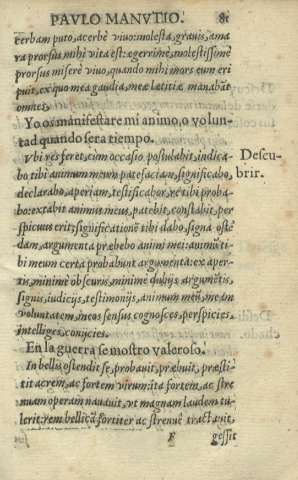 PAVLO MANVTIO. 81
cerbam puto, acerbè viuo: molesta, grauis, ama
ra prorsus mihi vita est: ægerrimè, molestissimè
prorsus misere viuo, quando mihi mors eum eri
puit, ex quo mea gaudia, meæ lætitiæ manabāt
omnes.
Yo os manifestare mi animo, o volun-
tad quando sera tiempo.
Vbi res feret, cùm occasio postulabit, indica-
bo tibi animum meum patefaciam, significabo,
declarabo, aperiam, testificabor, re tibi proba-
bo: extabit animus meus, patebit, constabit, per
spicuus erit; significationē tibi dabo, signa ostē
dam, argumenta præbebo animi mei: animū ti
bi meum certa probabunt argumenta: ex aper-
tis, minimè obscuris, minimè dubijs argumētis,
signis, iudicijs, testimonijs, animum meū, meān
voluntatem, meos sensus cognosces, perspicies,
intelliges, conijcies.
Descu-
brir.
En la guerra se mostro valeroso.
In bellis ostendit se, probauit, præbuit, præsti-
tit acrem, ac fortem virum: ita fortem, ac stre
nuam operam nauauit, vt magnam laudem tu-
lerit: rem bellicā fortiter ac strenuè tractauit,
F gessit